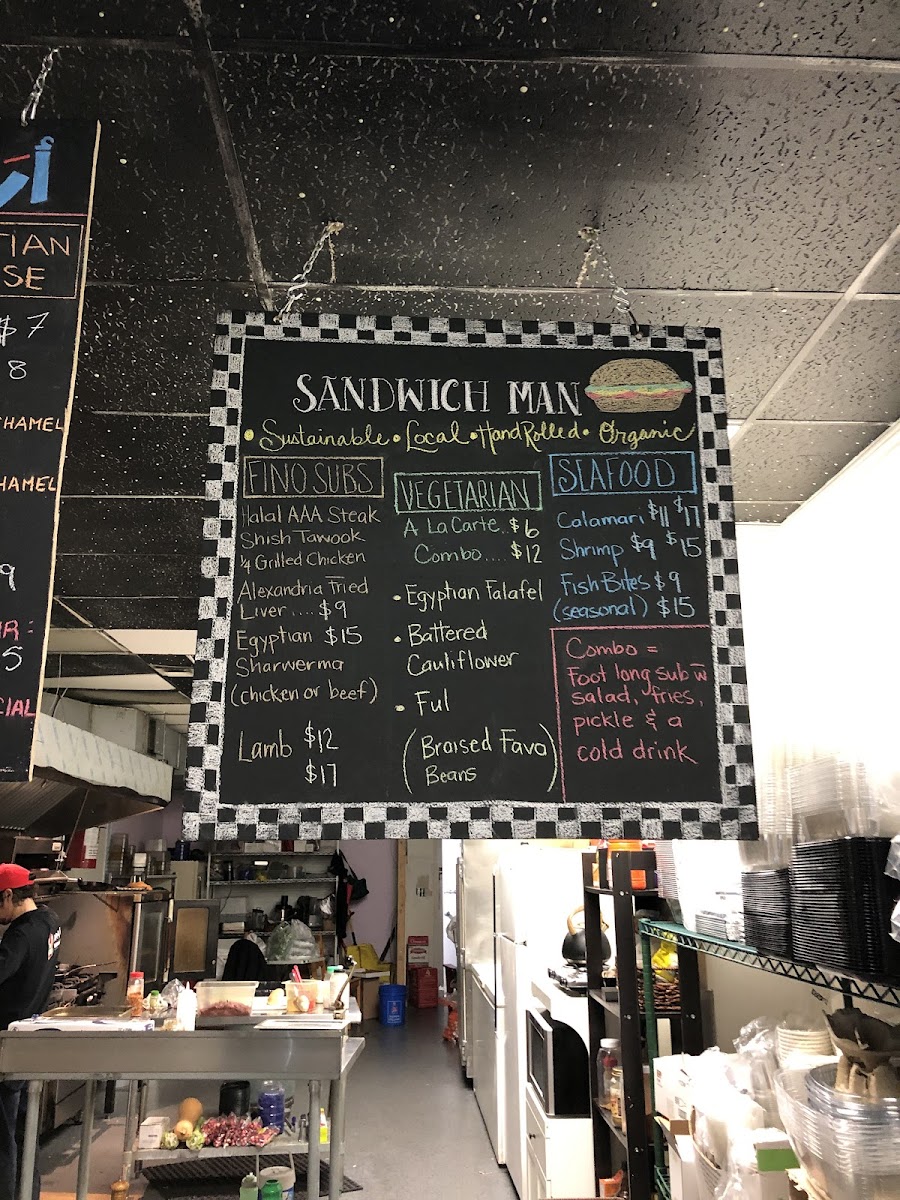 TIAN
SE
$7
8
CHAMEL
HAMEL
9
R:
5
CIAL
SANDWICH MAN
• Sustainable • Local • HandRolled • Organic
FINO SUBS
Halal AAA Steak
Shish Tawook
¼ Grilled Chicken
Alexandria Fried
Liver .... $9
Egyptian $15
Sharwerma
(chicken or beef)
Lamb $12
$17
VEGETARIAN
A La Carte .. $6
Combo .... $12
• Egyptian Falafel
• Battered
Cauliflower
• Ful
(Braised Fava
Beans)
SEAFOOD
Calamari $11 $17
Shrimp $9 $15
Fish Bites $9
(seasonal) $15
Combo =
Foot long sub w̅
salad, fries,
pickle & a
cold drink